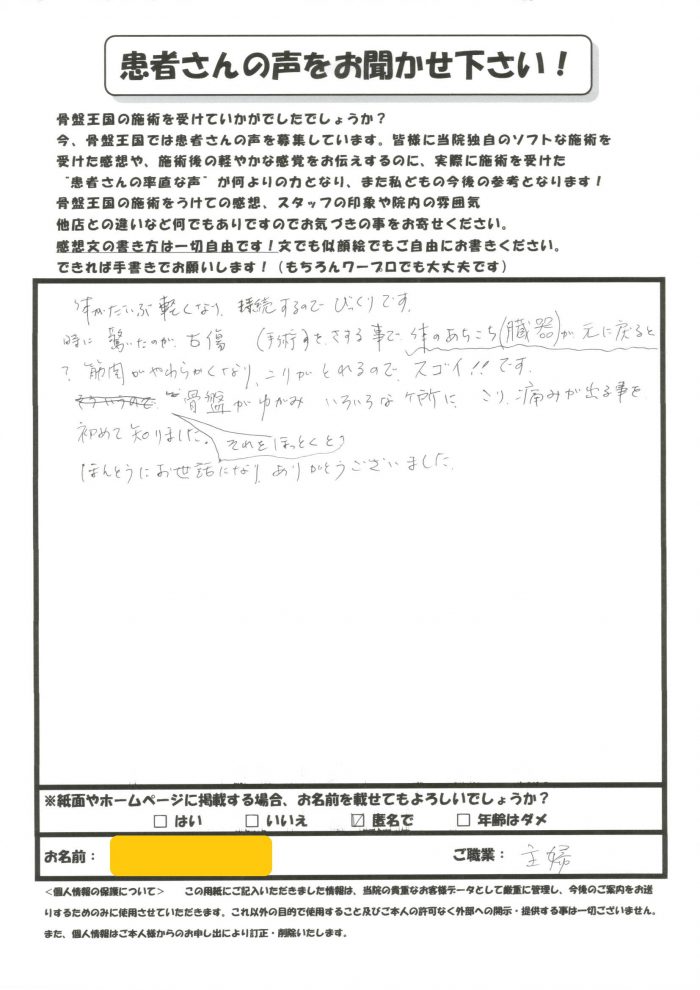 患者さんの声をお聞かせ下さい！
骨盤王国の施術を受けていかがでしたでしょうか？
今、骨盤王国では患者さんの声を募集しています。皆様に当院独自のソフトな施術を
受けた感想や、施術後の軽やかな感覚をお伝えするのに、実際に施術を受けた
"患者さんの率直な声"が何よりの力となり、また私どもの今後の参考となります！
骨盤王国の施術をうけての感想、スタッフの印象や院内の雰囲気
他店との違いなど何でもありですのでお気づきの事をお寄せください。
感想文の書き方は一切自由です！文でも似顔絵でもご自由にお書きください。
できれば手書きでお願いします！（もちろんワープロでも大丈夫です）
体がだいぶ軽くなり、持続するので びっくりです。
時に 驚いたのが、古傷 (手術)を、さする事で 体のあちこち(臓器)が 元に戻ると
？筋肉がやわらかくなり、こりがとれるので、スゴイ！！です。
そういうので 骨盤がゆがみ いろいろな ケ所に こり、痛みが出る事を
初めて知りました。 それをほっとくと
ほんとうにお世話になり、ありがとうございました。
※紙面やホームページに掲載する場合、お名前を載せてもよろしいでしょうか？
□ はい □ いいえ ☑ 匿名で □ 年齢はダメ
お名前： ご職業： 主婦
＜個人情報の保護について＞ この用紙にご記入いただきました情報は、当院の貴重なお客様データとして厳重に管理し、今後のご案内をお送
りするためのみに使用させていただきます。これ以外の目的で使用すること及びご本人の許可なく外部への開示・提供する事は一切ございません。
また、個人情報はご本人様からのお申し出により訂正・削除いたします。